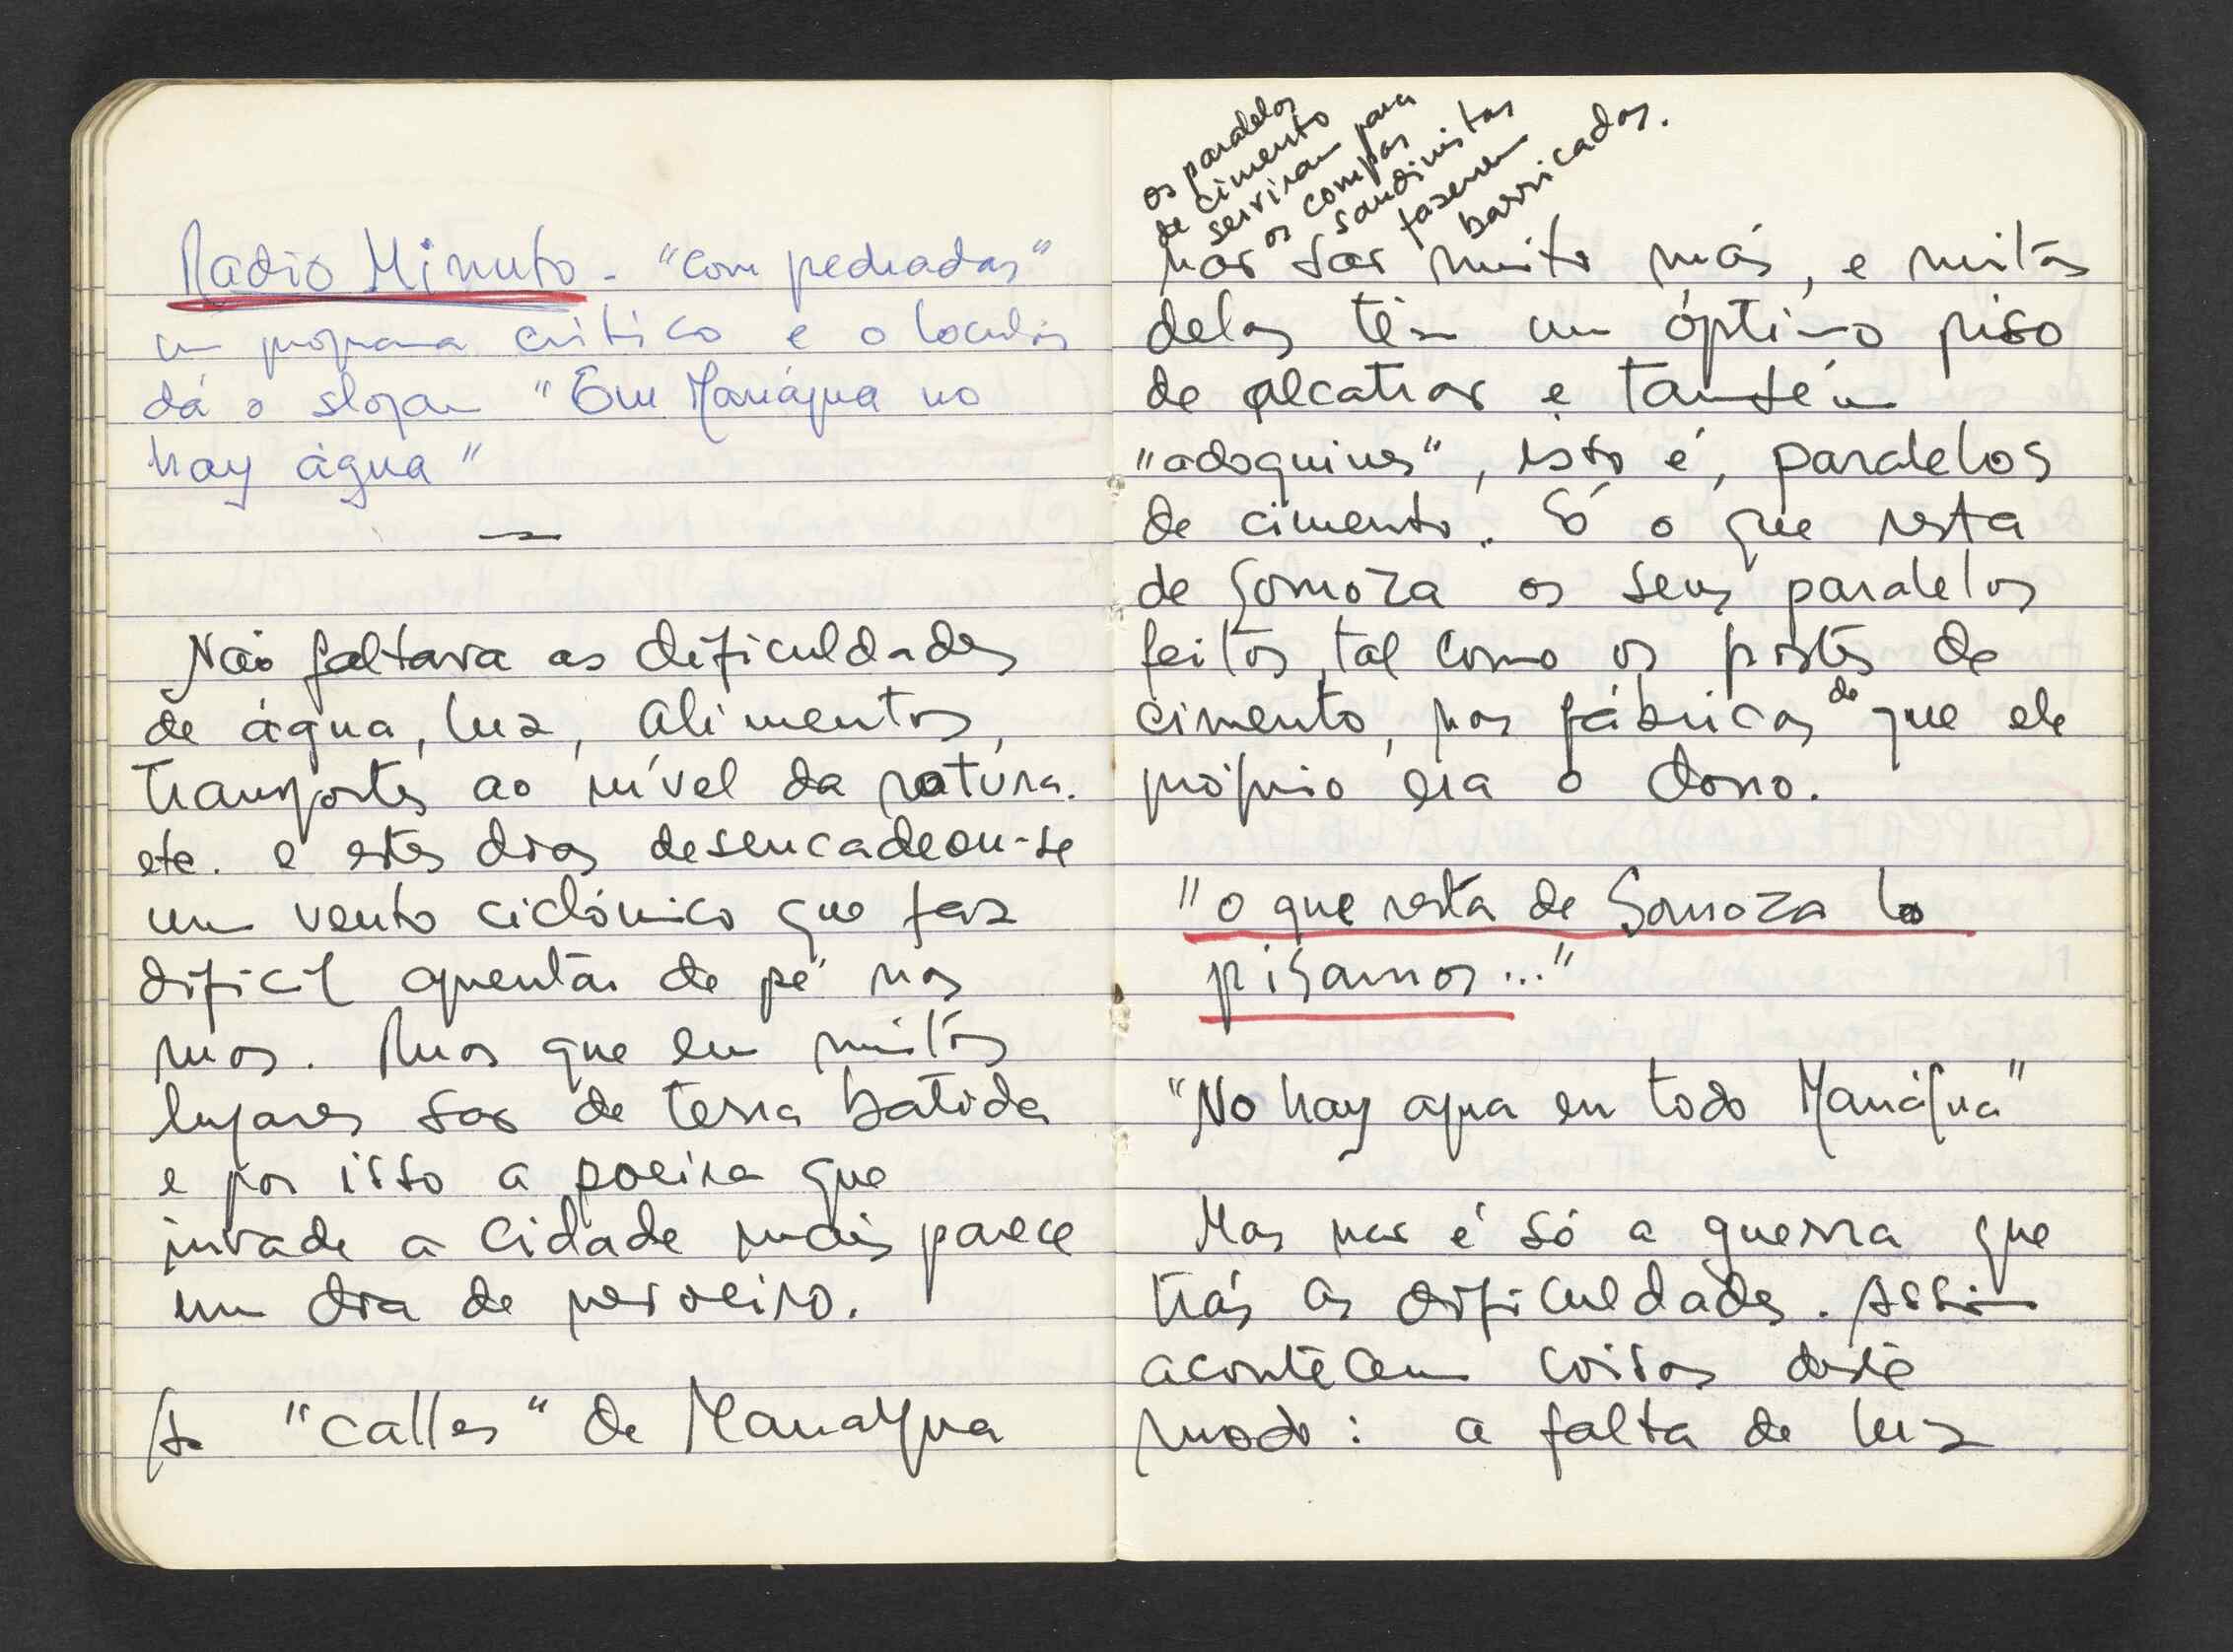 Radio Minuto - "Com pedradas"
um programa crítico e o locutor
dá o slogan "Em Manágua no
hay água"
Não faltava as dificuldades
de água, luz, alimentos,
transportes ao nível da rotura.
etc. e estes dias desencadeou-se
um vento ciclónico que faz
dificil aguentar de pé nas
ruas. Ruas que em muitos
lugares são de terra batida
e por isso a poeira que
invade a cidade mais parece
um dia de nevoeiro.
As "calles" de Managua
os paralelos
de cimento
serviram para
os compas
sandinistas
fazerem
barricadas.
não são muito más, e muitas
delas têm um óptimo piso
de alcatrão e também
"adoquines", isto é, paralelos
de cimento. Só o que resta
de Somoza os seus paralelos
feitos, tal como os postes de
cimento, nas fábricas de que ele
próprio era o dono.
"o que resta de Somoza lo
pisamos..."
"No hay agua en todo Manágua"
Mas não é só a guerra que
trás as dificuldades. Assim
acontecem coisas deste
modo: a falta de luz